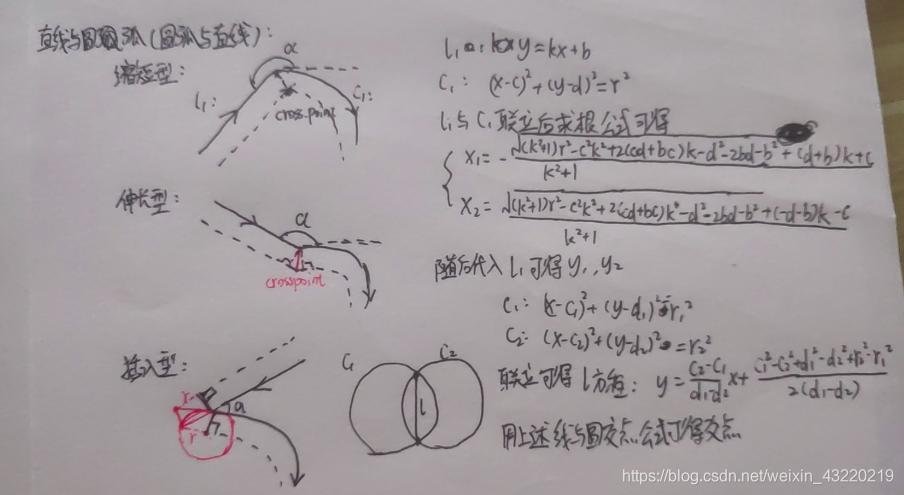 直线与圆弧(圆弧与直线):
缩短型:
α
l₁:
C₁:
cross point
伸长型:
α
crosspoint
插入型:
r
r
α
C₁
C₂
l
l₁: y=kx+b
C₁: (x-c)²+(y-d)²=r²
l₁与C₁联立后求根公式可得
X₁=-√(k²+1)r²-c²k²+2(cd+bc)k-d²-2bd-b²+(d+b)k+c
k²+1
X₂=√(k²+1)r²-c²k²+2(cd+bc)k-d²-2bd-b²+(-d-b)k-c
k²+1
随后代入l₁可得y₁,y₂
C₁: (x-c₁)²+(y-d₁)²=r₁²
C₂: (x-c₂)²+(y-d₂)²=r₂²
联立可得l方程: y=(c₂-c₁)/(d₁-d₂)x+(c₁²-c₂²+d₁²-d₂²+r₂²-r₁²)/2(d₁-d₂)
用上述线与圆交点公式可得交点
https://blog.csdn.net/weixin_43220219